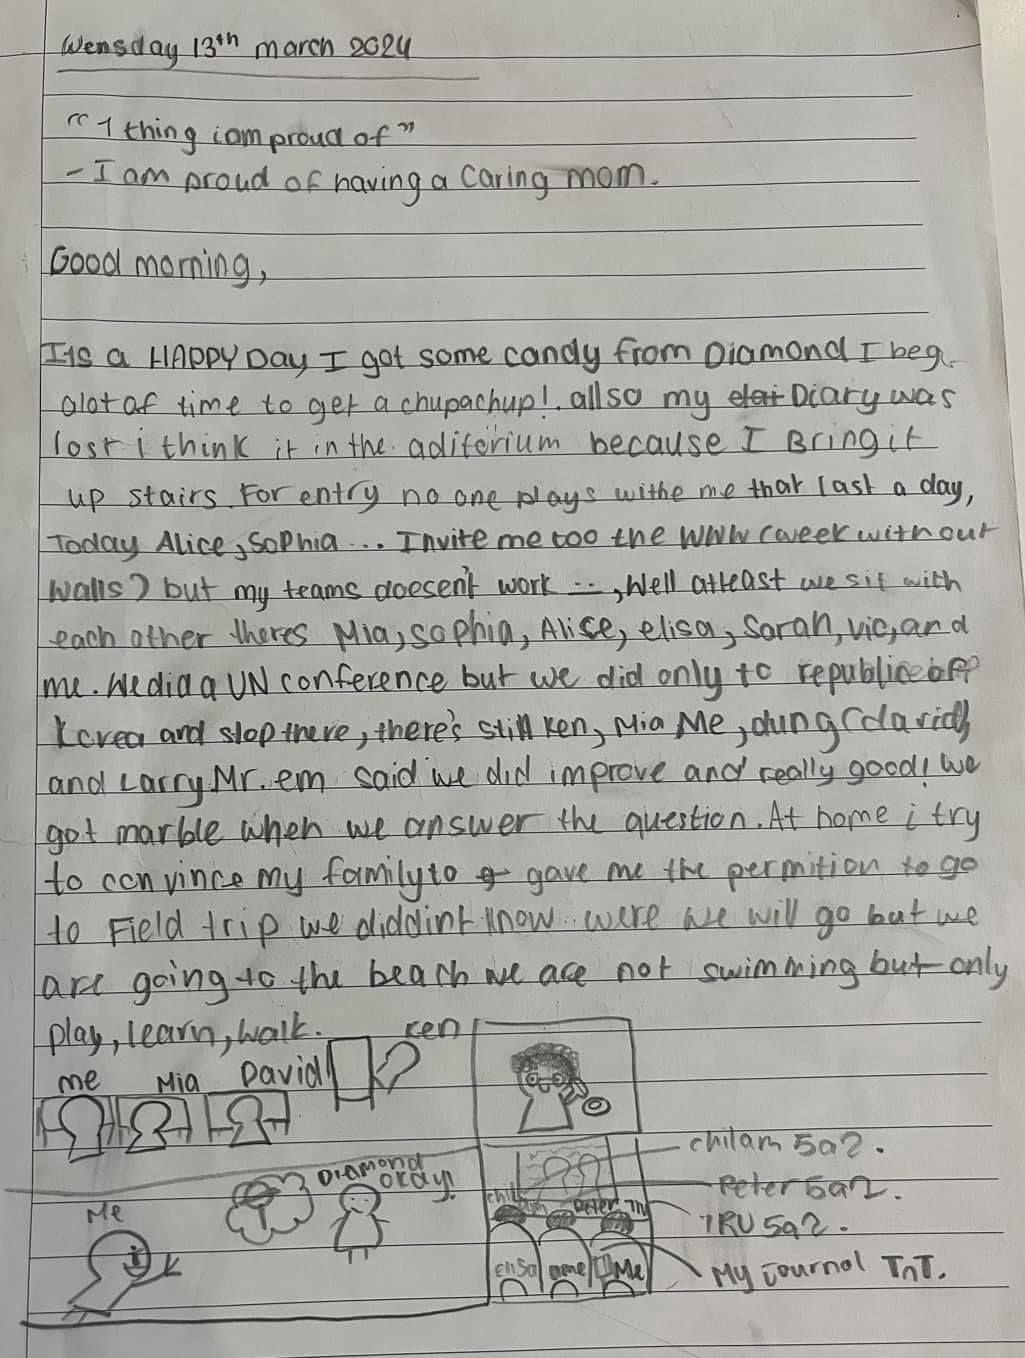 Wensday 13th march 2024
"1 thing iam proud of"
- I am proud of having a caring mom.
Good morning,
Its a HAPPY Day, I got some candy from Diamond I beg
alot of time to get a chupachup!. allso my Diary was
lost i think it in the aditorium because I Bring it
up stairs. For entry no one plays withe me that last a day,
Today Alice, Sophia ... Invite me too the WWW (week without
walls) but my teams doesen't work ..., Well atleast we sit with
each other theres Mia, sophia, Alice, elisa, Sarah, vic, and
me. We did a UN conference but we did only to republic off
Korea and stop there, there's still ken, Mia Me, dung (david)
and Larry. Mr. em said we did improve and really good! we
got marble when we answer the question. At home i try
to convince my family to gave me the permition to go
to Field trip we diddint know were we will go but we
are going to the beach we are not swimming but only
play, learn, walk.
me Mia David ken
chilam 5a2.
Peter 5a2.
TRU 5a2.
My Journal TnT.
DIAMOND
okay!
Me
Peter
Me